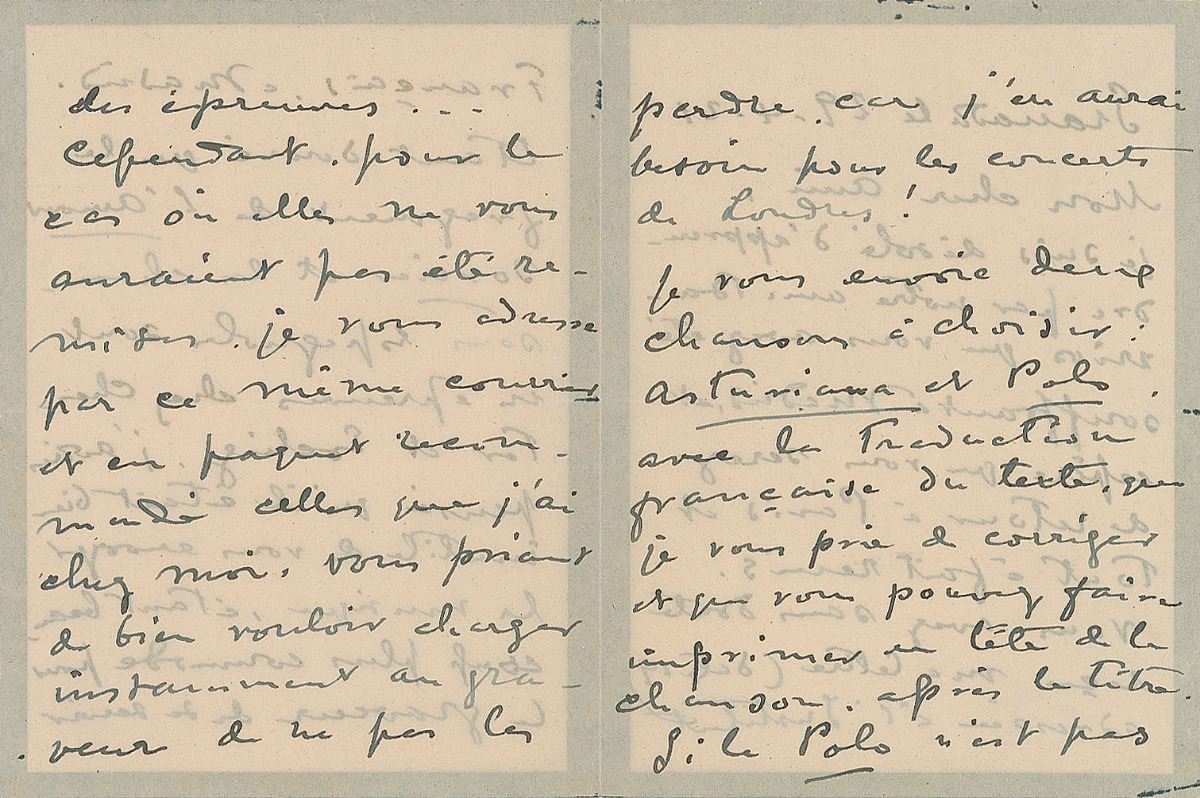 des épreuves...
Cependant, pour le
cas où elles ne vous
auraient pas été re-
mises, je vous adresse
par ce même courrier
et en paquet recom-
mandé celles que j'ai
chez moi, vous priant
de bien vouloir charger
instamment au gra-
veur de ne pas les
perdre, car j'en aurai
besoin pour les concerts
de Londres!
Je vous envoie deux
chansons à choisir:
Asturiana et Polo,
avec la traduction
française du texte, que
je vous prie de corriger
et que vous pouvez faire
imprimer en tête de la
chanson, après le titre.
Si le Polo n'est pas